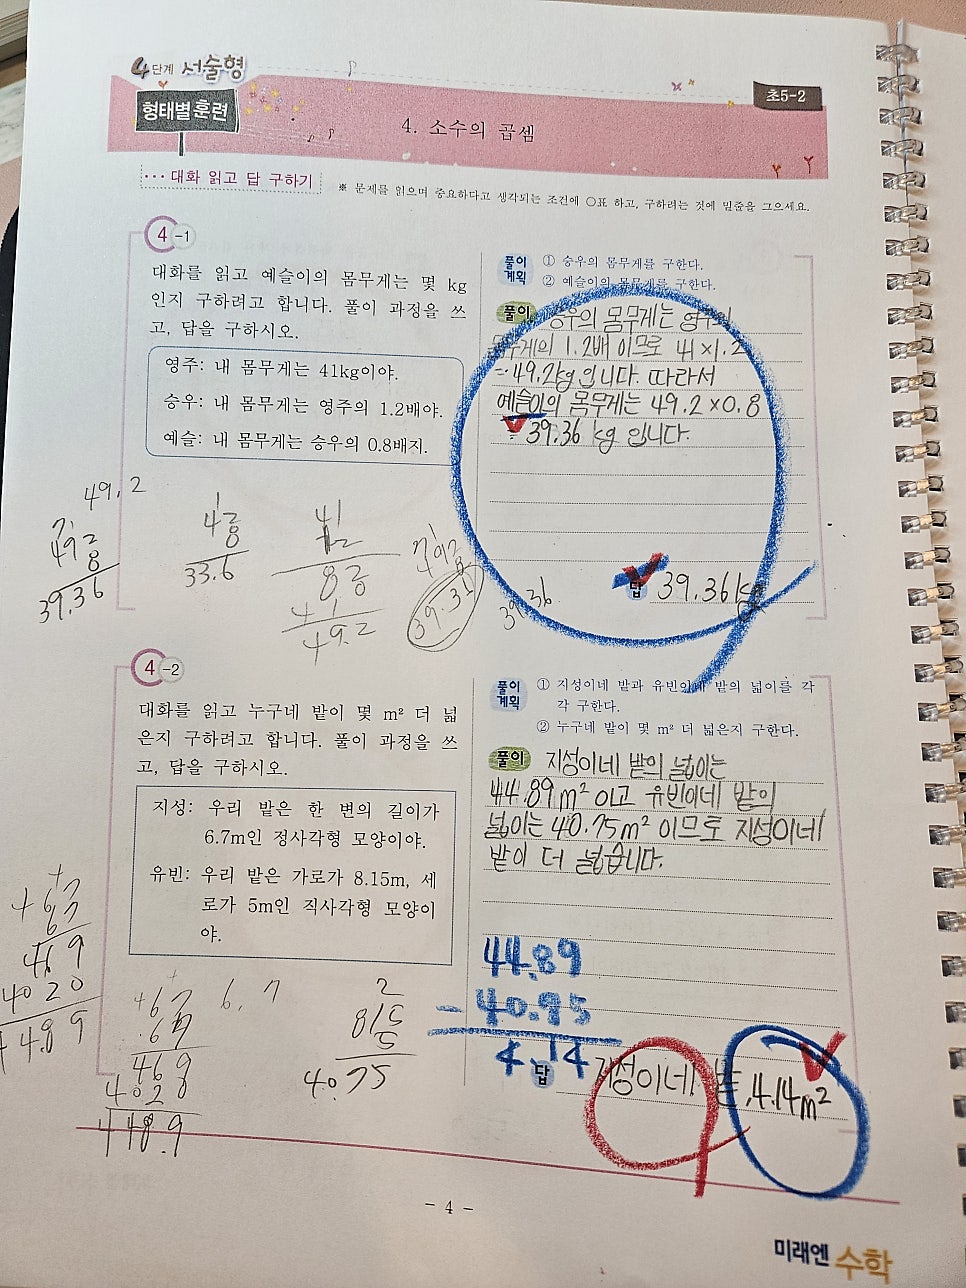 4단계 서술형
형태별 훈련
초5-2
4. 소수의 곱셈
··· 대화 읽고 답 구하기
※ 문제를 읽으며 중요하다고 생각되는 조건에 ○표 하고, 구하려는 것에 밑줄을 그으세요.
4-1
대화를 읽고 예슬이의 몸무게는 몇 kg
인지 구하려고 합니다. 풀이 과정을 쓰
고, 답을 구하시오.
영주: 내 몸무게는 41kg이야.
승우: 내 몸무게는 영주의 1.2배야.
예슬: 내 몸무게는 승우의 0.8배지.
풀이 계획
① 승우의 몸무게를 구한다.
② 예슬이의 몸무게를 구한다.
풀이
승우의 몸무게는 영주의
몸무게의 1.2배 이므로 41×1.2
=49.2kg 입니다. 따라서
예슬이의 몸무게는 49.2×0.8
=39.36 kg 입니다.
답 39.36kg
49.2
492
8
39.36
42
8
33.6
41
12
82
41
49.2
39.36
4-2
대화를 읽고 누구네 밭이 몇 m² 더 넓
은지 구하려고 합니다. 풀이 과정을 쓰
고, 답을 구하시오.
지성: 우리 밭은 한 변의 길이가
6.7m인 정사각형 모양이야.
유빈: 우리 밭은 가로가 8.15m, 세
로가 5m인 직사각형 모양이
야.
풀이 계획
① 지성이네 밭과 유빈이네 밭의 넓이를 각
각 구한다.
② 누구네 밭이 몇 m² 더 넓은지 구한다.
풀이
지성이네 밭의 넓이는
44.89m² 이고 유빈이네 밭의
넓이는 40.75m² 이므로 지성이네
밭이 더 넓습니다.
44.89
- 40.75
4.14
답 지성이네 밭, 4.14m²
67
67
469
4020
67
67
469
402
448.9
6.7
2
815
5
40.75
- 4 -
미래엔 수학